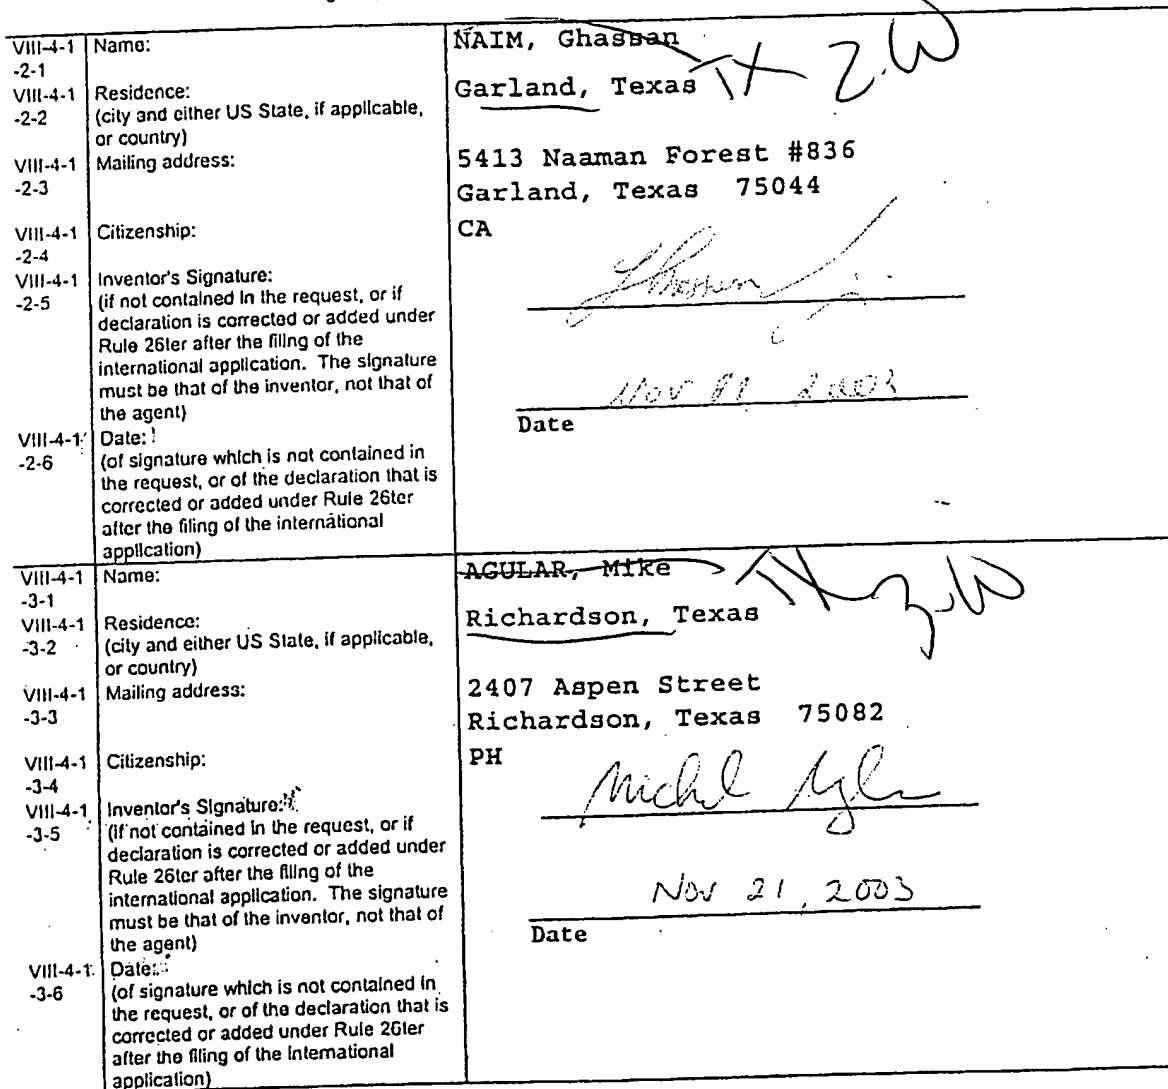 VIII-4-1 Name: NAIM, Ghassan
-2-1
VIII-4-1 Residence: Garland, Texas TX
-2-2 (city and either US State, if applicable,
or country)
VIII-4-1 Mailing address: 5413 Naaman Forest #836
-2-3 Garland, Texas 75044
VIII-4-1 Citizenship: CA
-2-4
VIII-4-1 Inventor's Signature:
-2-5 (if not contained in the request, or if
declaration is corrected or added under
Rule 26ter after the filing of the
international application. The signature
must be that of the inventor, not that of
the agent)
Nov 2003
Date
VIII-4-1 Date:
-2-6 (of signature which is not contained in
the request, or of the declaration that is
corrected or added under Rule 26ter
after the filing of the international
application)
VIII-4-1 Name: AGULAR, Mike TX
-3-1
VIII-4-1 Residence: Richardson, Texas
-3-2 (city and either US State, if applicable,
or country)
VIII-4-1 Mailing address: 2407 Aspen Street
-3-3 Richardson, Texas 75082
VIII-4-1 Citizenship: PH
-3-4
VIII-4-1 Inventor's Signature:
-3-5 (if not contained in the request, or if
declaration is corrected or added under
Rule 26ter after the filing of the
international application. The signature
must be that of the inventor, not that of
the agent)
Nov 21, 2003
Date
VIII-4-1 Date:
-3-6 (of signature which is not contained in
the request, or of the declaration that is
corrected or added under Rule 26ter
after the filing of the international
application)